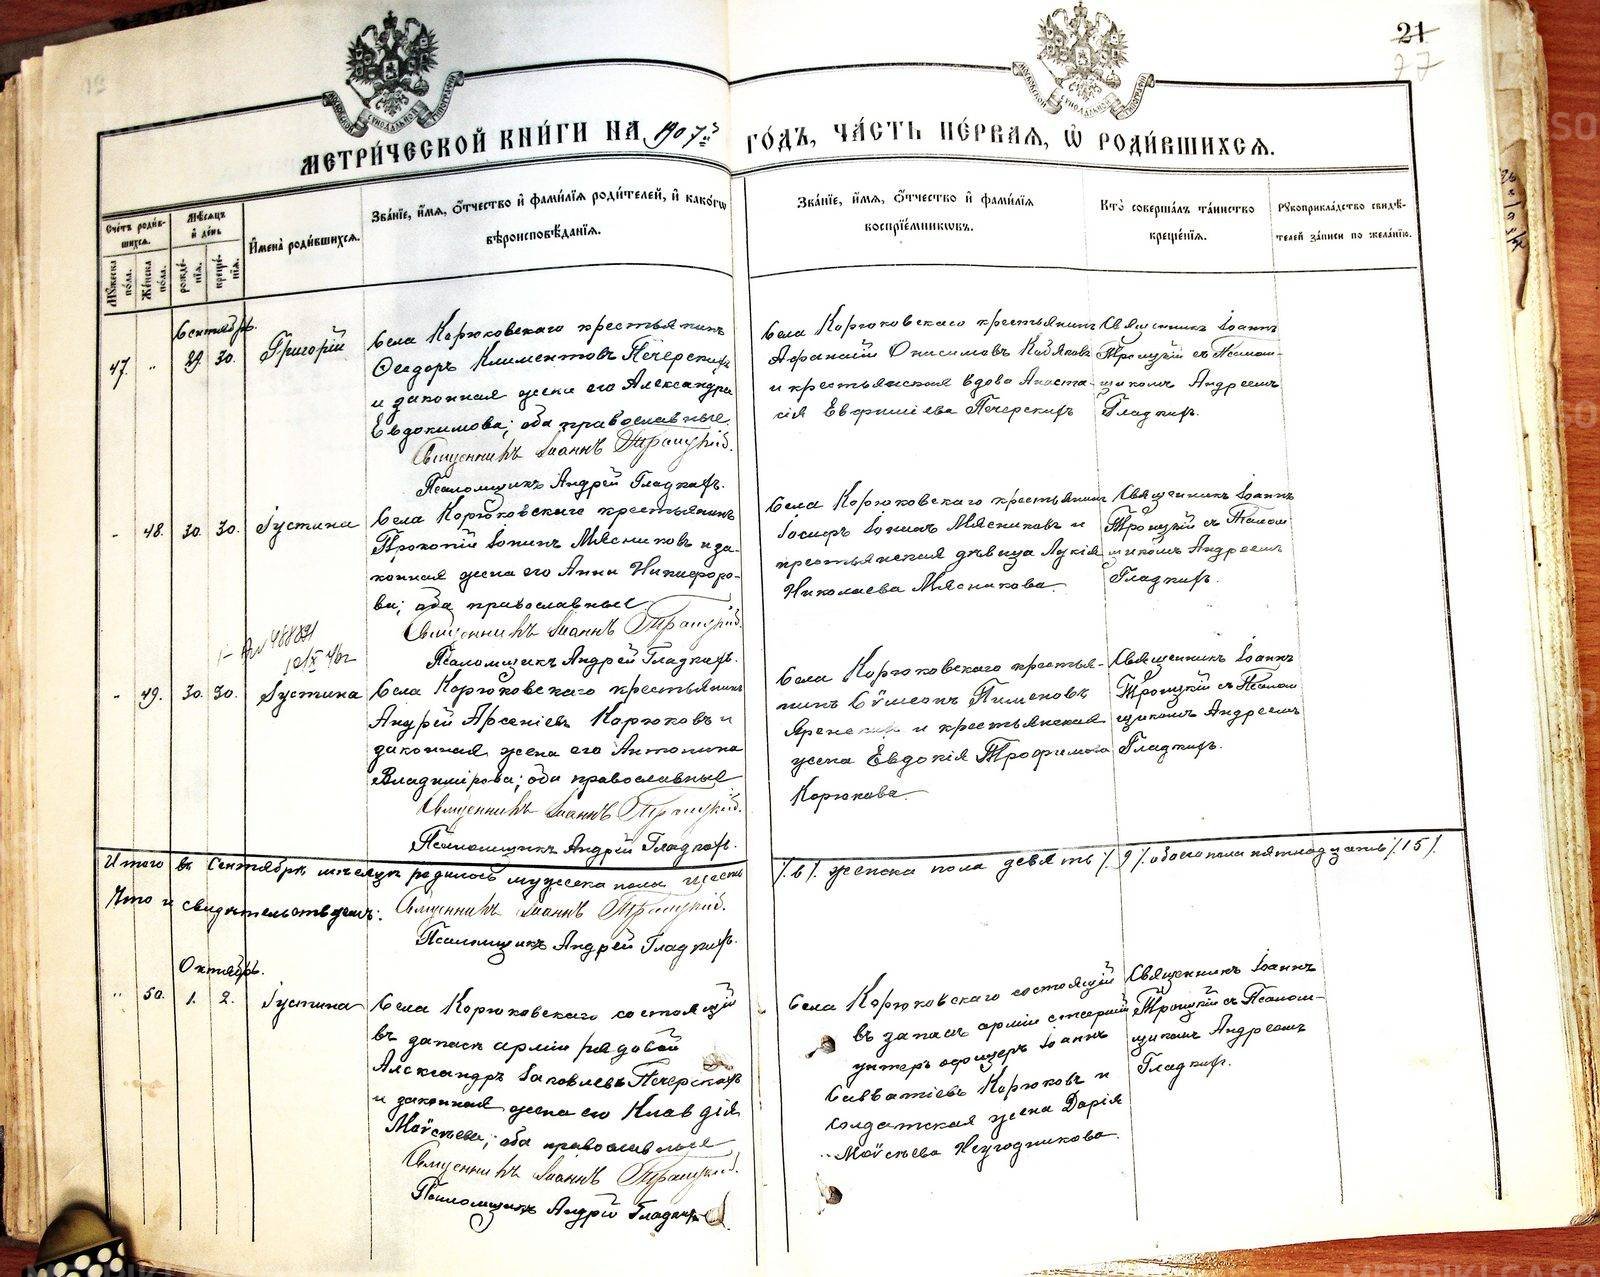 21
77
МЕТРИ́ЧЕСКОЙ КНИ́ГИ НА 1907й ГО́ДЪ, ЧА́СТЬ ПЕ́РВАЯ, Ѡ҆ РОДИ́ВШИХСЯ.
Счетъ роди́вшихся.
Мѣ́сяцъ и҆ де́нь
И҆мена̀ роди́вшихся.
Зва́нїе, и҆́мя, ѻ҆́тчество и҆ фами́лїя роди́телей, и҆ како́гѡ
вѣроисповѣ́данїя.
Зва́нїе, и҆́мя, ѻ҆́тчество и҆ фами́лїя
воспрїе́мниковъ.
Кто̀ соверша́лъ та́инство
креще́нїя.
Рꙋкоприкла́дство свидѣ́-
телей за́писи по жела́нїю.
Мꙋ́жеска по́ла.
Же́нска по́ла.
рожде́-нїя.
креще́-нїя.
Сентябрь.
47. " 29. 30. Григорій
Села Корюковскаго крестьянинъ
Ѳеодоръ Климентовъ Печерскихъ
и законная жена его Александра
Евдокимова; оба православные.
Священникъ Іоаннъ Троицкій.
Псаломщикъ Андрей Гладкихъ.
Села Корюковскаго крестьянинъ
Афанасій Онисимовъ Кобяковъ
и крестьянская вдова Анаста-
сія Евфиміева Печерскихъ
Священникъ Іоаннъ
Троицкій съ Псалом-
щикомъ Андреемъ
Гладкихъ.
" 48. 30. 30. Іустина
Села Корюковскаго крестьянинъ
Прокопій Іонинъ Мясниковъ и за-
конная жена его Анна Никифоро-
ва; оба православные.
Священникъ Іоаннъ Троицкій.
Псаломщикъ Андрей Гладкихъ.
Села Корюковскаго крестьянинъ
Іосифъ Іонинъ Мясниковъ и
крестьянская дѣвица Лукія
Николаева Мясникова.
Священникъ Іоаннъ
Троицкій съ Псалом
щикомъ Андреемъ
Гладкихъ.
" 49. 30. 30. Іустина
Села Корюковскаго крестьянинъ
Андрей Арсеніевъ Корюковъ и
законная жена его Антонина
Владимірова; оба православные
Священникъ Іоаннъ Троицкій.
Псаломщикъ Андрей Гладкихъ.
Села Корюковскаго крестья-
нинъ Сѵмеонъ Пименовъ
и крестьянская
жена Евдокія Трофимова
Корюкова.
Священникъ Іоаннъ
Троицкій съ Псалом
щикомъ Андреемъ
Гладкихъ.
Итого въ Сентябрѣ мѣсяцѣ родилось мужеска пола шесть /.6/. женска пола девять /.9/. обоего пола пятнадцать /.15/.
Что и свидѣтельствуемъ: Священникъ Іоаннъ Троицкій.
Псаломщикъ Андрей Гладкихъ.
Октябрь.
" 50. 1. 2. Іустина
Села Корюковскаго состоящій
въ запасѣ арміи рядовой
Александръ Іаковлевъ Печерскихъ
и законная жена его Клавдія
Моѵсѣева; оба православные
Священникъ Іоаннъ Троицкій.
Псаломщикъ Андрей Гладкихъ
Села Корюковскаго состоящій
въ запасѣ арміи старшій
унтеръ офицеръ Іоаннъ
Савватіевъ Корюковъ и
солдатская жена Дарія
Моѵсѣева Неугодникова.
Священникъ Іоаннъ
Троицкій съ Псалом-
щикомъ Андреемъ
Гладкихъ.